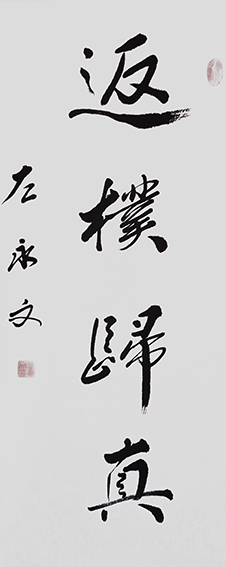 返樸歸真
左永文